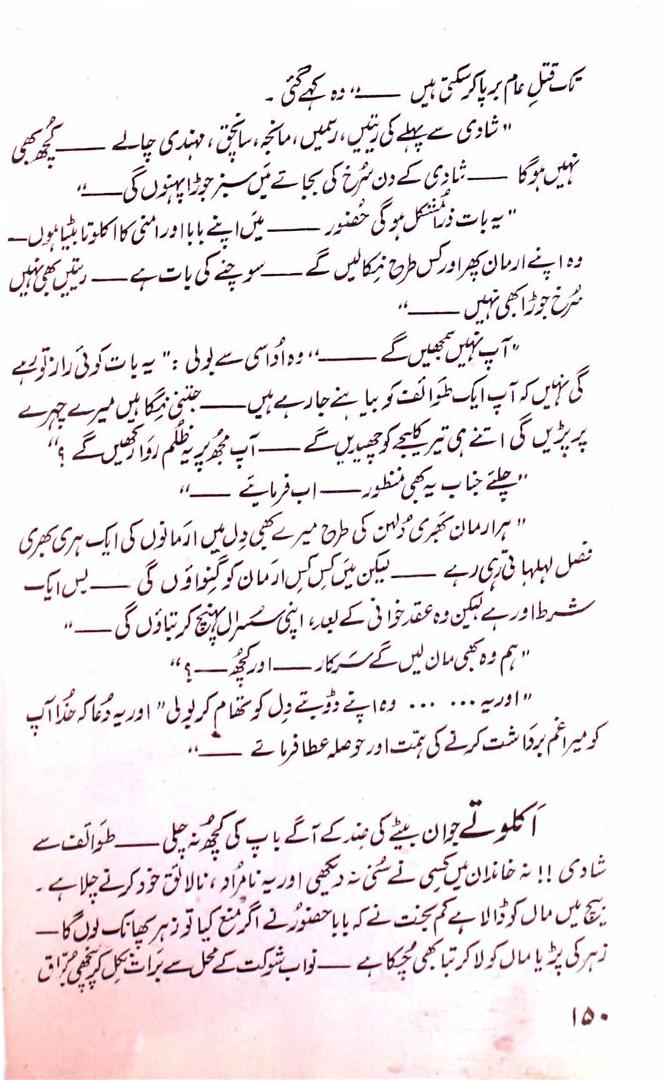 تک قتلِ عام برپا کر سکتی ہیں ——“ وہ کہے گئی ۔
”شادی سے پہلے کی ریتیں، رسمیں، مانجہ، سانچق، مہندی چالے —— کچھ بھی
نہیں ہوگا —— شادی کے دن سُرخ کی بجائے میں سبز جوڑا پہنوں گی ——“
”یہ بات ذرا مشکل ہو گی حضُور —— میں اپنے بابا اور امنی کا اکلوتا بیٹا ہوں ——
وہ اپنے ارمان پھر اور کس طرح نکالیں گے —— سوچنے کی بات ہے —— ریتیں بھی نہیں
سُرخ جوڑا بھی نہیں ——“
”آپ نہیں سمجھیں گے ——“ وہ اُداسی سے بولی : ”یہ بات کوئی راز تو رہے
گی نہیں کہ آپ ایک طوائف کو بیاہنے جا رہے ہیں —— جتنی نگاہیں میرے چہرے
پر پڑیں گی اتنے ہی تیر کلیجے کو چھیدیں گے —— آپ مجھ پر یہ ظلم روا رکھیں گے ؟“
”چلئے جناب یہ بھی منظور —— اب فرمائیے ——“
”ہر ارمان بھری دُلہن کی طرح میرے بھی دِل میں ارمانوں کی ایک ہری بھری
فصل لہلہاتی رہی رہے —— لیکن میں کس کس ارمان کو گِنواؤں گی —— بس ایک
شرط اور ہے لیکن وہ عقد خوانی کے بعد، اپنی سُسرال پہنچ کر بتاؤں گی ——“
”ہم وہ بھی مان لیں گے سرکار —— اور کچھ —— ؟“
”اور یہ ... ... وہ اپنے ڈوبتے دِل کو تھام کر بولی ”اور یہ دُعا کہ خُدا آپ
کو میرا غم برداشت کرنے کی ہمّت اور حوصلہ عطا فرمائے ——“
اَکلوتے جوان بیٹے کی ضد کے آگے باپ کی کچھ نہ چلی —— طوائف سے
شادی !! نہ خاندان میں کسی نے سُنی نہ دیکھی اور یہ نامُراد، نالائق خود کرنے چلا ہے ۔
بیچ میں ماں کو ڈالا ہے کم بخت نے کہ بابا حضُور نے اگر منع کیا تو زہر پھانک لوں گا ——
زہر کی پڑیا ماں کو لا کر بتا بھی چُکا ہے —— نواب شوکت کے محل سے برات نکل کر بُراق
۱۵۰